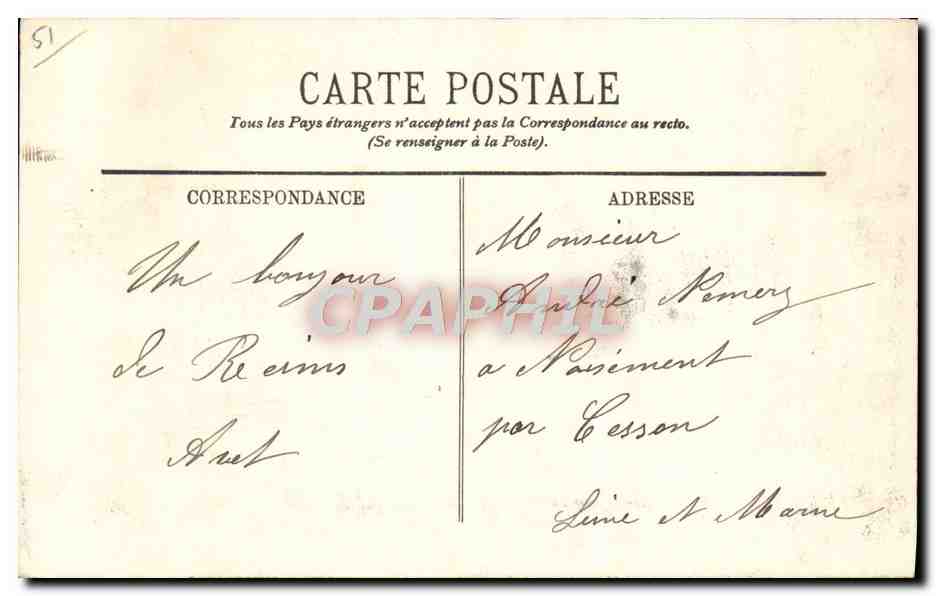 51
CARTE POSTALE
Tous les Pays étrangers n'acceptent pas la Correspondance au recto.
(Se renseigner à la Poste).
CORRESPONDANCE
Un bonjour
de Reims
ADRESSE
Monsieur
André Nemery
a Noisement
par Cesson
Seine et Marne
CPAPHIL